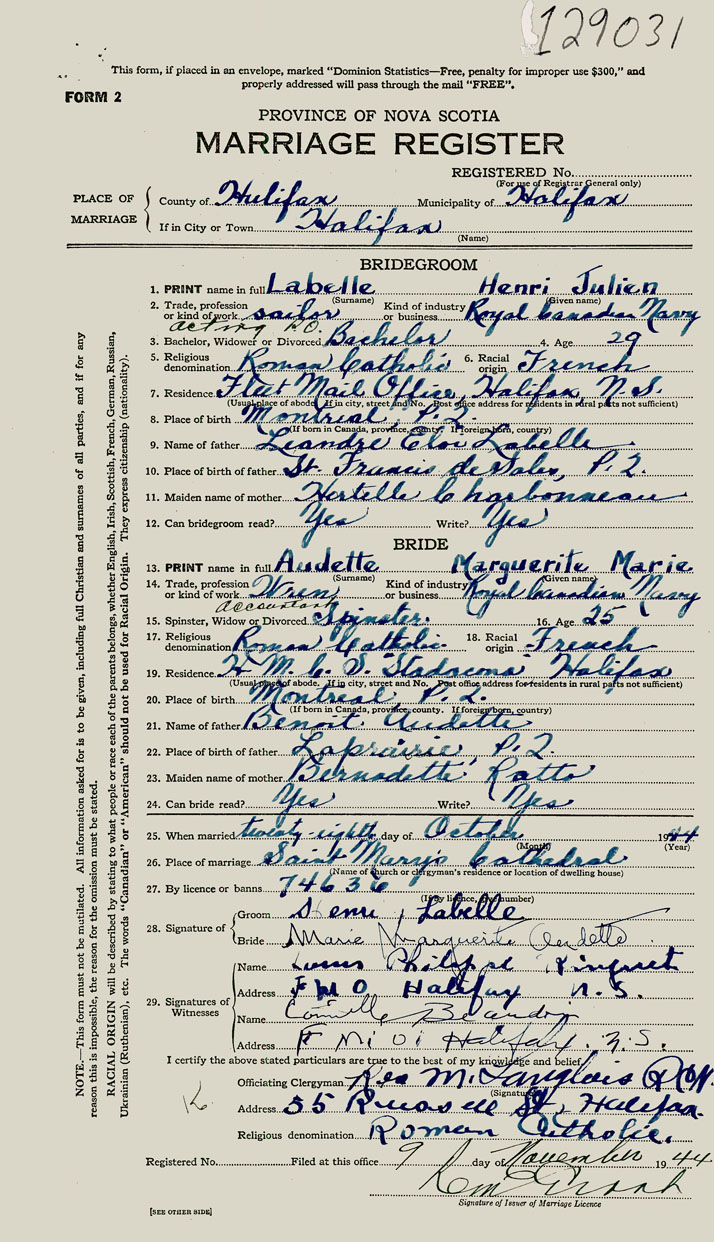 129031
This form, if placed in an envelope, marked "Dominion Statistics—Free, penalty for improper use $300," and
properly addressed will pass through the mail "FREE".
FORM 2
PROVINCE OF NOVA SCOTIA
MARRIAGE REGISTER
REGISTERED No.
(For use of Registrar General only)
PLACE OF MARRIAGE
County of Halifax Municipality of Halifax
If in City or Town Halifax
(Name)
BRIDEGROOM
1. PRINT name in full Labelle Henri Julien
(Surname) (Given name)
2. Trade, profession or kind of work sailor Kind of industry or business Royal Canadian Navy
acting P.O.
3. Bachelor, Widower or Divorced Bachelor 4. Age 29
5. Religious denomination Roman Catholic 6. Racial origin French
7. Residence Fleet Mail Office, Halifax, N.S.
(Usual place of abode. If in city, street and No. Post office address for residents in rural parts not sufficient)
8. Place of birth Montreal, P.Q.
(If born in Canada, province, county. If foreign born, country)
9. Name of father Leandre Eloi Labelle
10. Place of birth of father St. Francis de Sales, P.Q.
11. Maiden name of mother Charbonneau
12. Can bridegroom read? Yes Write? Yes
BRIDE
13. PRINT name in full Audette Marguerite Marie
(Surname) (Given name)
14. Trade, profession or kind of work Wren Kind of industry or business Royal Canadian Navy
accountant
15. Spinster, Widow or Divorced Spinster. 16. Age 25
17. Religious denomination Roman Catholic. 18. Racial origin French
19. Residence H.M.C.S. Stadacona Halifax
(Usual place of abode. If in city, street and No. Post office address for residents in rural parts not sufficient)
20. Place of birth Montreal, P.Q.
(If born in Canada, province, county. If foreign born, country)
21. Name of father Benoit Audette
22. Place of birth of father Laprairie, P.Q.
23. Maiden name of mother Bernadette Ratto
24. Can bride read? Yes Write? Yes
25. When married twenty-eight day of October 1944
(Month) (Year)
26. Place of marriage Saint Mary's Cathedral
(Name of church or clergyman's residence or location of dwelling house)
27. By licence or banns 74636
(If by licence, give number)
28. Signature of
Groom Henri J Labelle
Bride Marie Marguerite Audette
29. Signatures of Witnesses
Name Louis Philippe Ringuet
Address F M O Halifax N.S.
Name Camille
Address F M O Halifax. N.S.
I certify the above stated particulars are true to the best of my knowledge and belief.
Officiating Clergyman M. Langlois
(Signature)
Address 55 St, Halifax.
Religious denomination Roman Catholic.
Registered No. Filed at this office 9 day of November 1944
Signature of Issuer of Marriage Licence
[SEE OTHER SIDE]
NOTE.—This form must not be mutilated. All information asked for is to be given, including full Christian and surnames of all parties, and if for any
reason this is impossible, the reason for the omission must be stated.
RACIAL ORIGIN will be described by stating to what people or race each of the parents belongs, whether English, Irish, Scottish, French, German, Russian,
Ukrainian (Ruthenian), etc. The words "Canadian" or "American" should not be used for Racial Origin. They express citizenship (nationality).